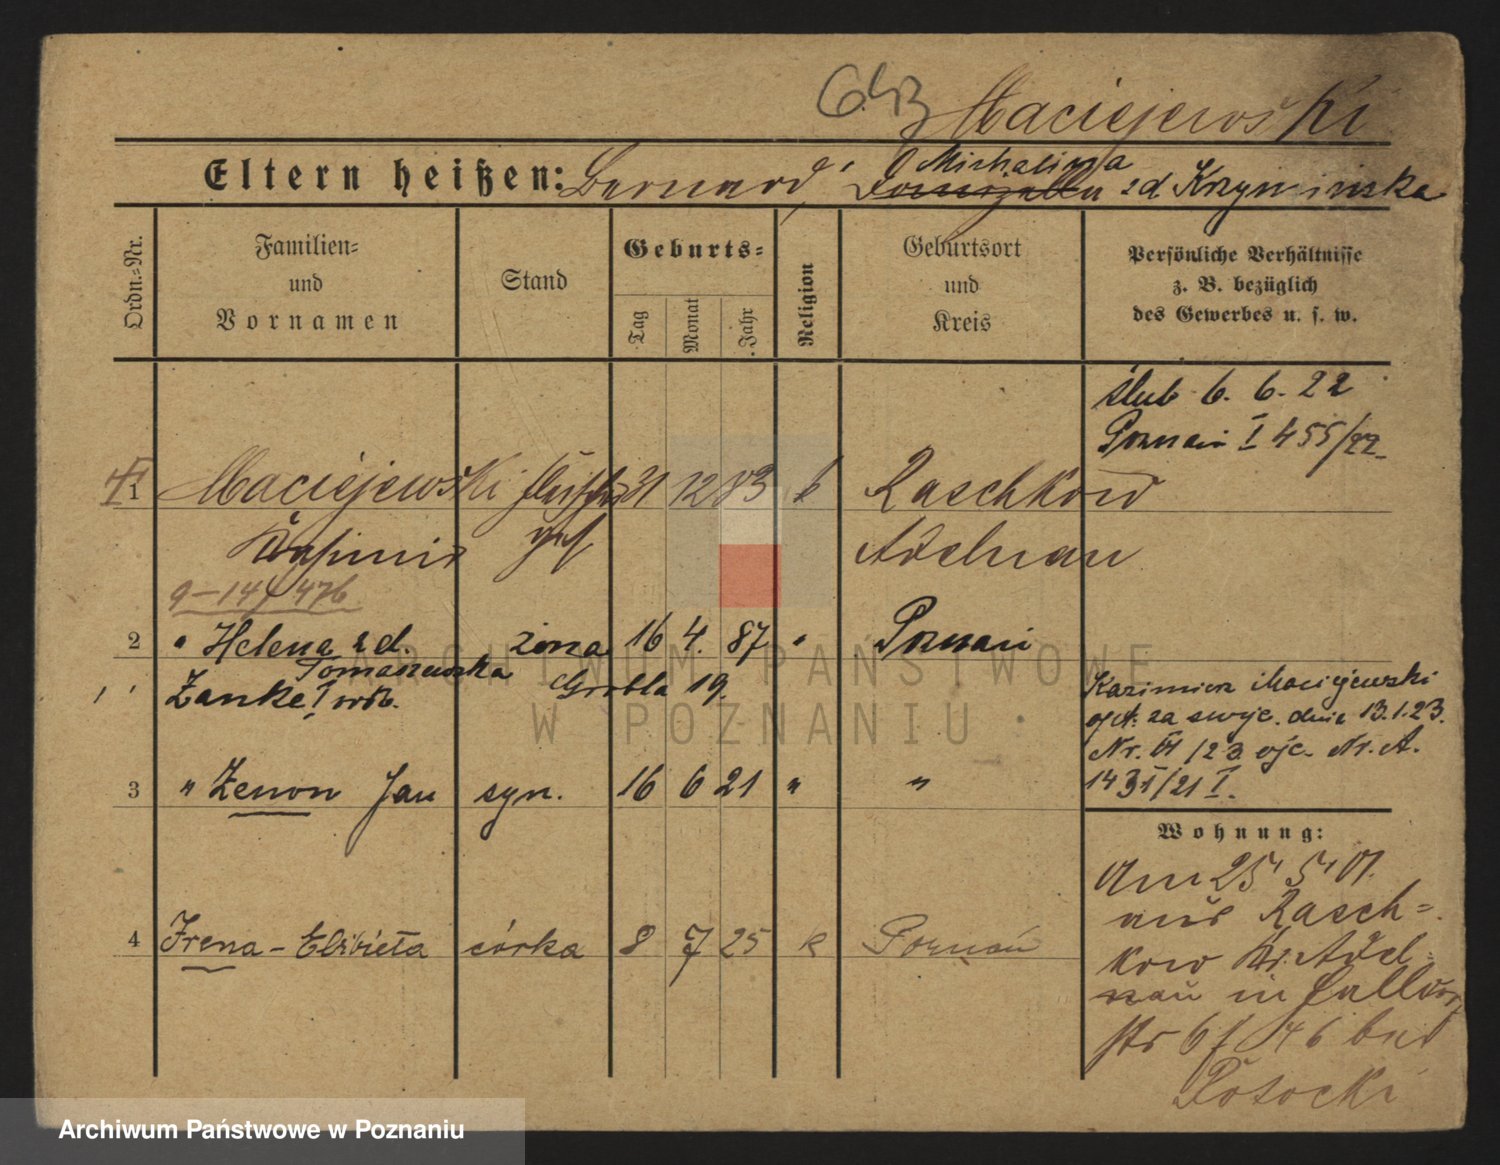 Maciejewski
Eltern heißen: Bernard, Michalina
zd Krzymińska
Ordn.=Nr.
Familien=
und
Vornamen
Stand
Geburts=
Tag
Monat
Jahr
Religion
Geburtsort
und
Kreis
Persönliche Verhältnisse
z. B. bezüglich
des Gewerbes u. s. w.
ślub 6. 6. 22
Poznań I 455/22
1 Maciejewski 31 12 83 k Raschkow
Kasimir Adelnau
9-147 476
2 " Helena zd. żona 16 4. 87 " Poznań
Tomaszewska
Zanke! Grobla 19.
Kazimierz Maciejewski
za dnia 13.1.23.
Nr. VI/23 ojc. Nr. A.
1431/21 I.
3 " Zenon Jan syn. 16 6 21 " "
Wohnung:
Am 25/5 01.
aus Rasch=
kow Kr. Adel=
nau in Halldorf
str 6 46 bei
Potocki
4 Irena - Elżbieta córka 8 7 25 k Poznań
ARCHIWUM PAŃSTWOWE
W POZNANIU
Archiwum Państwowe w Poznaniu